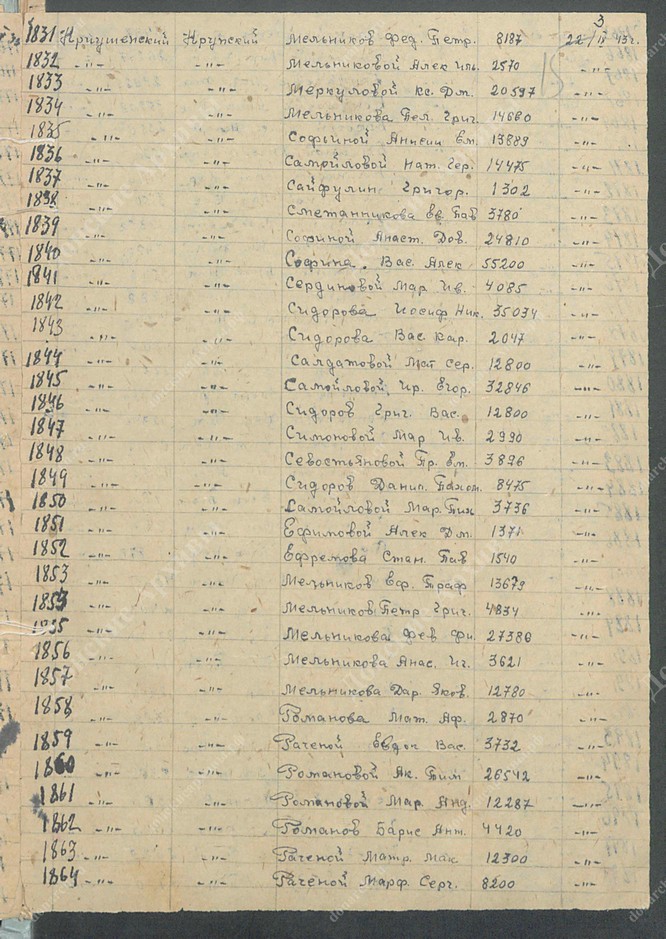 3
1831 Криушенский Крупский Мельников Фед. Петр. 8187 22/II 43 г.
1832 -"- -"- Мельниковой Алек Иль. 2570 -"-
1833 -"- -"- Меркуловой Кс. Дм. 20597 -"-
15
1834 -"- -"- Мельникова Пел. Григ. 14660 -"-
1835 -"- -"- Софьиной Анисии Ем. 13889 -"-
1836 -"- -"- Самойловой Нат. Гер. 14475 -"-
1837 -"- -"- Сайфулин Григор. 1302 -"-
1838 -"- -"- Сметанникова Ев. Пав 3780 -"-
1839 -"- -"- Софиной Анаст. Дов. 24810 -"-
1840 -"- -"- Софина. Вас. Алек 55200 -"-
1841 -"- -"- Сердиновой Мар Ив. 4085 -"-
1842 -"- -"- Сидорова Иосиф Ник. 35034 -"-
1843 -"- -"- Сидорова Вас. Кар. 2047 -"-
1844 -"- -"- Салдатовой Мат Сер. 12800 -"-
1845 -"- -"- Самойловой Ир. Егор. 32846 -"-
1846 -"- -"- Сидоров Григ. Вас. 12800 -"-
1847 -"- -"- Симоновой Мар Ив. 2990 -"-
1848 -"- -"- Севостьяновой Пр. Ем. 3896 -"-
1849 -"- -"- Сидоров Данил. Пахом. 8475 -"-
1850 -"- -"- Самойловой Мар. Тих 3736 -"-
1851 -"- -"- Ефимовой Алек Дм. 1371 -"-
1852 -"- -"- Ефремова Стан. Пав 1540 -"-
1853 -"- -"- Мельников Еф. Траф 13679 -"-
1853 -"- -"- Мельников Петр Григ. 4834 -"-
1855 -"- -"- Мельникова Фев Фи. 27386 -"-
1856 -"- -"- Мельникова Анас. Иг. 3621 -"-
1857 -"- -"- Мельникова Дар. Яков. 12780 -"-
1858 -"- -"- Романова Мат. Аф. 2870 -"-
1859 -"- -"- Раченой Евдок Вас. 3732 -"-
1860 -"- -"- Романовой Ак. Тим 26542 -"-
1861 -"- -"- Романовой Мар. Анд. 12287 -"-
1862 -"- -"- Романов Барис Ант. 4420 -"-
1863 -"- -"- Раченой Матр. Мак 12300 -"-
1864 -"- -"- Раченой Марф. Серг. 8200 -"-